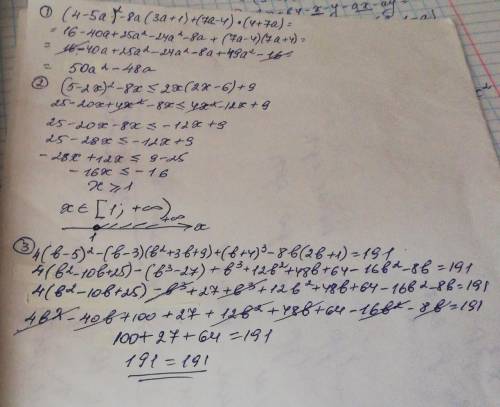 ① (4-5a)²-8a(3a+1)+(7a-4)·(4+7a)=
= 16-40a+25a²-24a²-8a+(7a-4)(7a+4)=
= 16-40a+25a²-24a²-8a+49a²-16=
= 50a²-48a
② (5-2x)²-8x≤2x(2x-6)+9
25-20x+4x²-8x≤4x²-12x+9
25-20x-8x≤-12x+9
25-28x≤-12x+9
-28x+12x≤9-25
-16x≤-16
x≥1
x∈[1; +∞)
1 +∞ x
③ 4(b-5)²-(b-3)(b²+3b+9)+(b+4)³-8b(2b+1)=191
4(b²-10b+25)-(b³-27)+b³+12b²+48b+64-16b²-8b=191
4(b²-10b+25)-b³+27+b³+12b²+48b+64-16b²-8b=191
4b²-40b+100+27+12b²+48b+64-16b²-8b=191
100+27+64=191
191=191